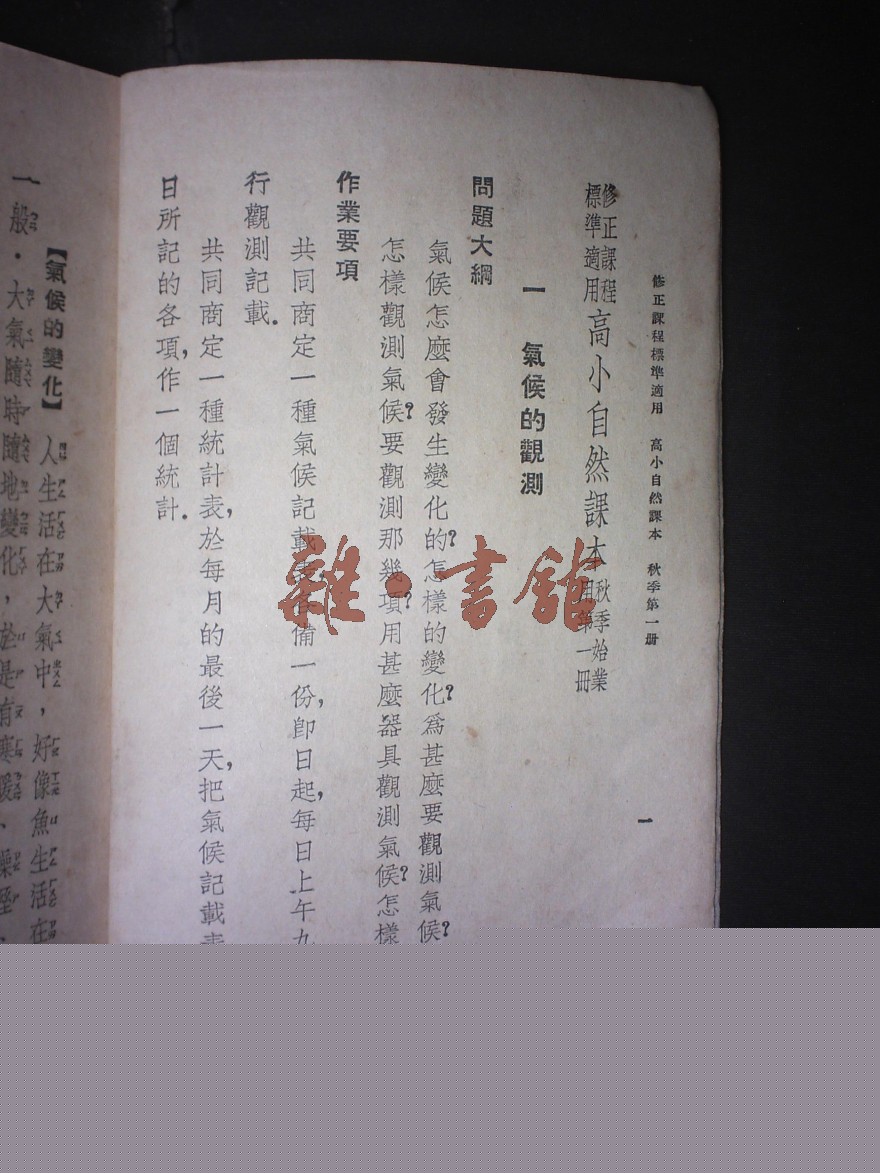 修正課程標準適用　高小自然課本　秋季第一册
一
修正課程
標準適用
高小自然課本
秋季始業
用第一冊
一　氣候的觀測
問題大綱
氣候怎麼會發生變化的?怎樣的變化?爲甚麼要觀測氣候?
怎樣觀測氣候?要觀測那幾項?用甚麼器具觀測氣候?怎樣
作業要項
共同商定一種氣候記載表,各備一份,卽日起,每日上午九
行觀測記載.
共同商定一種統計表,於每月的最後一天,把氣候記載表
日所記的各項,作一個統計.
【氣候的變化】人生活在大氣中，好像魚生活在
一般．大氣隨時隨地變化，於是有寒暖、燥溼、
雜·書館